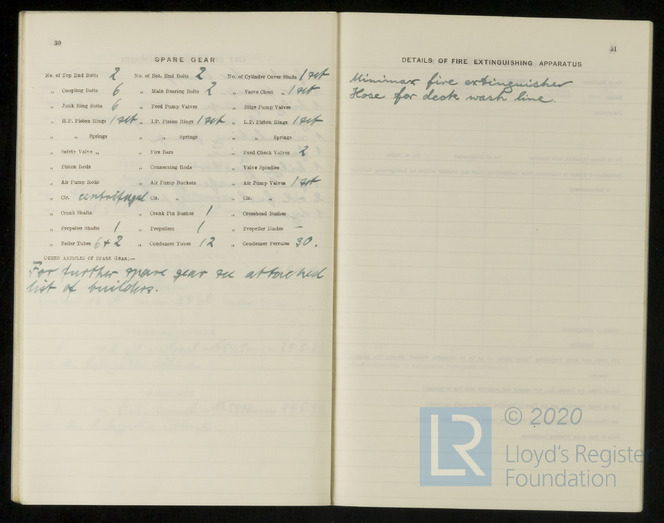 30
SPARE GEAR
No. of Top End Bolts 2 No. of Bot. End Bolts 2 No. of Cylinder Cover Studs 1 set
„ Coupling Bolts 6 „ Main Bearing Bolts 2 „ Valve Chest „ 1 set
„ Junk Ring Bolts 6 „ Feed Pump Valves „ Bilge Pump Valves
„ H.P. Piston Rings 1 set „ I.P. Piston Rings 1 set „ L.P. Piston Rings 1 set
„ „ Springs „ „ Springs „ „ Springs
„ Safety Valve „ „ Fire Bars „ Feed Check Valves 2
„ Piston Rods „ Connecting Rods „ Valve Spindles
„ Air Pump Rods „ Air Pump Buckets „ Air Pump Valves 1 set
„ Cir. centrifugal „ Cir. „ „ Cir. „
„ Crank Shafts „ Crank Pin Bushes 1 „ Crosshead Bushes
„ Propeller Shafts 1 „ Propellers 1 „ Propeller Blades –
„ Boiler Tubes 6 + 2 „ Condenser Tubes 12 „ Condenser Ferrules 30.
OTHER ARTICLES OF SPARE GEAR:—
For further spare gear see attached
list of builders.
31
DETAILS OF FIRE EXTINGUISHING APPARATUS
Minimax fire extinguisher
Hose for deck wash line.
LR © 2020
Lloyd's Register
Foundation